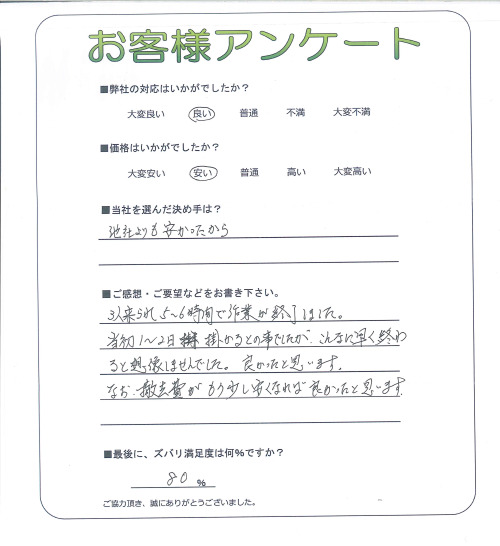 お客様アンケート
■弊社の対応はいかがでしたか?
大変良い 良い 普通 不満 大変不満
■価格はいかがでしたか?
大変安い 安い 普通 高い 大変高い
■当社を選んだ決め手は?
他社よりも安かったから
■ご感想・ご要望などをお書き下さい。
来られ5〜6時間で作業が終了しました。
当初1〜2日 掛かるとの事でしたが、こんなに早く終わ
ると想像しませんでした。良かったと思います。
なお、撤去費がもう少し安くなれば良かったと思います。
■最後に、ズバリ満足度は何%ですか?
80 %
ご協力頂き、誠にありがとうございました。